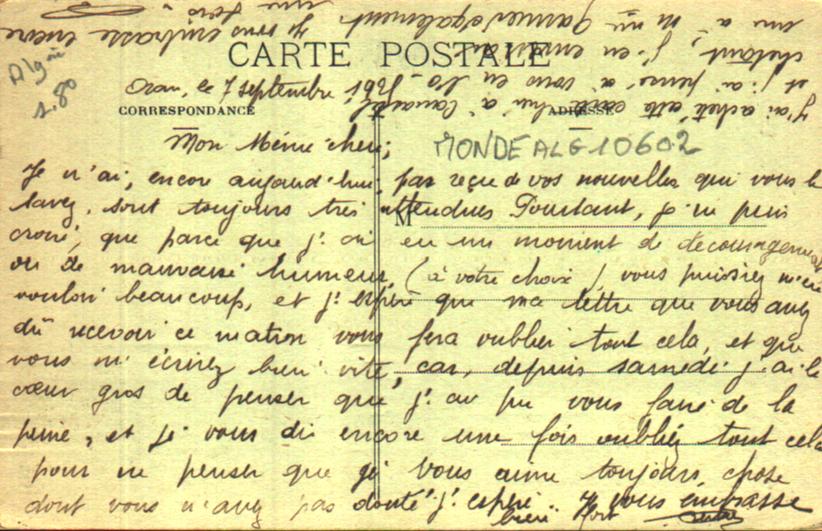 CARTE POSTALE
Algérie
1.80
Oran, le 7 septembre
CORRESPONDANCE
ADRESSE
MONDEALG10602
Mon Mémé chéri,
Je n'ai, encore aujourd'hui, pas reçu de vos nouvelles qui vous le
savez, sont toujours très attendues Pourtant, je ne puis
M
croire, que parce que j'ai eu un moment de découragement
ou de mauvaise humeur, (à votre choix) vous puissiez m'en
vouloir beaucoup, et j'espère que ma lettre que vous avez
dû recevoir ce matin vous fera oublier tout cela, et que
vous m'écrirez bien vite, car, depuis samedi j'ai le
cœur gros de penser que j'ai pu vous faire de la
peine, et je vous dis encore une fois oubliez tout cela
pour ne penser que je vous aime toujours, chose
dont vous n'avez pas douté j'espère.. Je vous embrasse
bien fort
J'ai acheté cette carte à
et j'ai pensé à vous en
chetant, j'en
un à également. Je vous embrasse encore
une fois